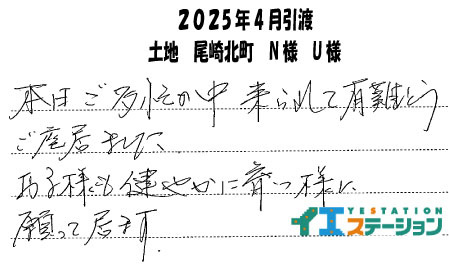 2025年4月引渡
土地 尾崎北町 N様 U様
本日ご多忙の中 来られて有難とう
ご座居ました
お子様も健やかに育つ様に
願って居ます
YESTATION
イエステーション